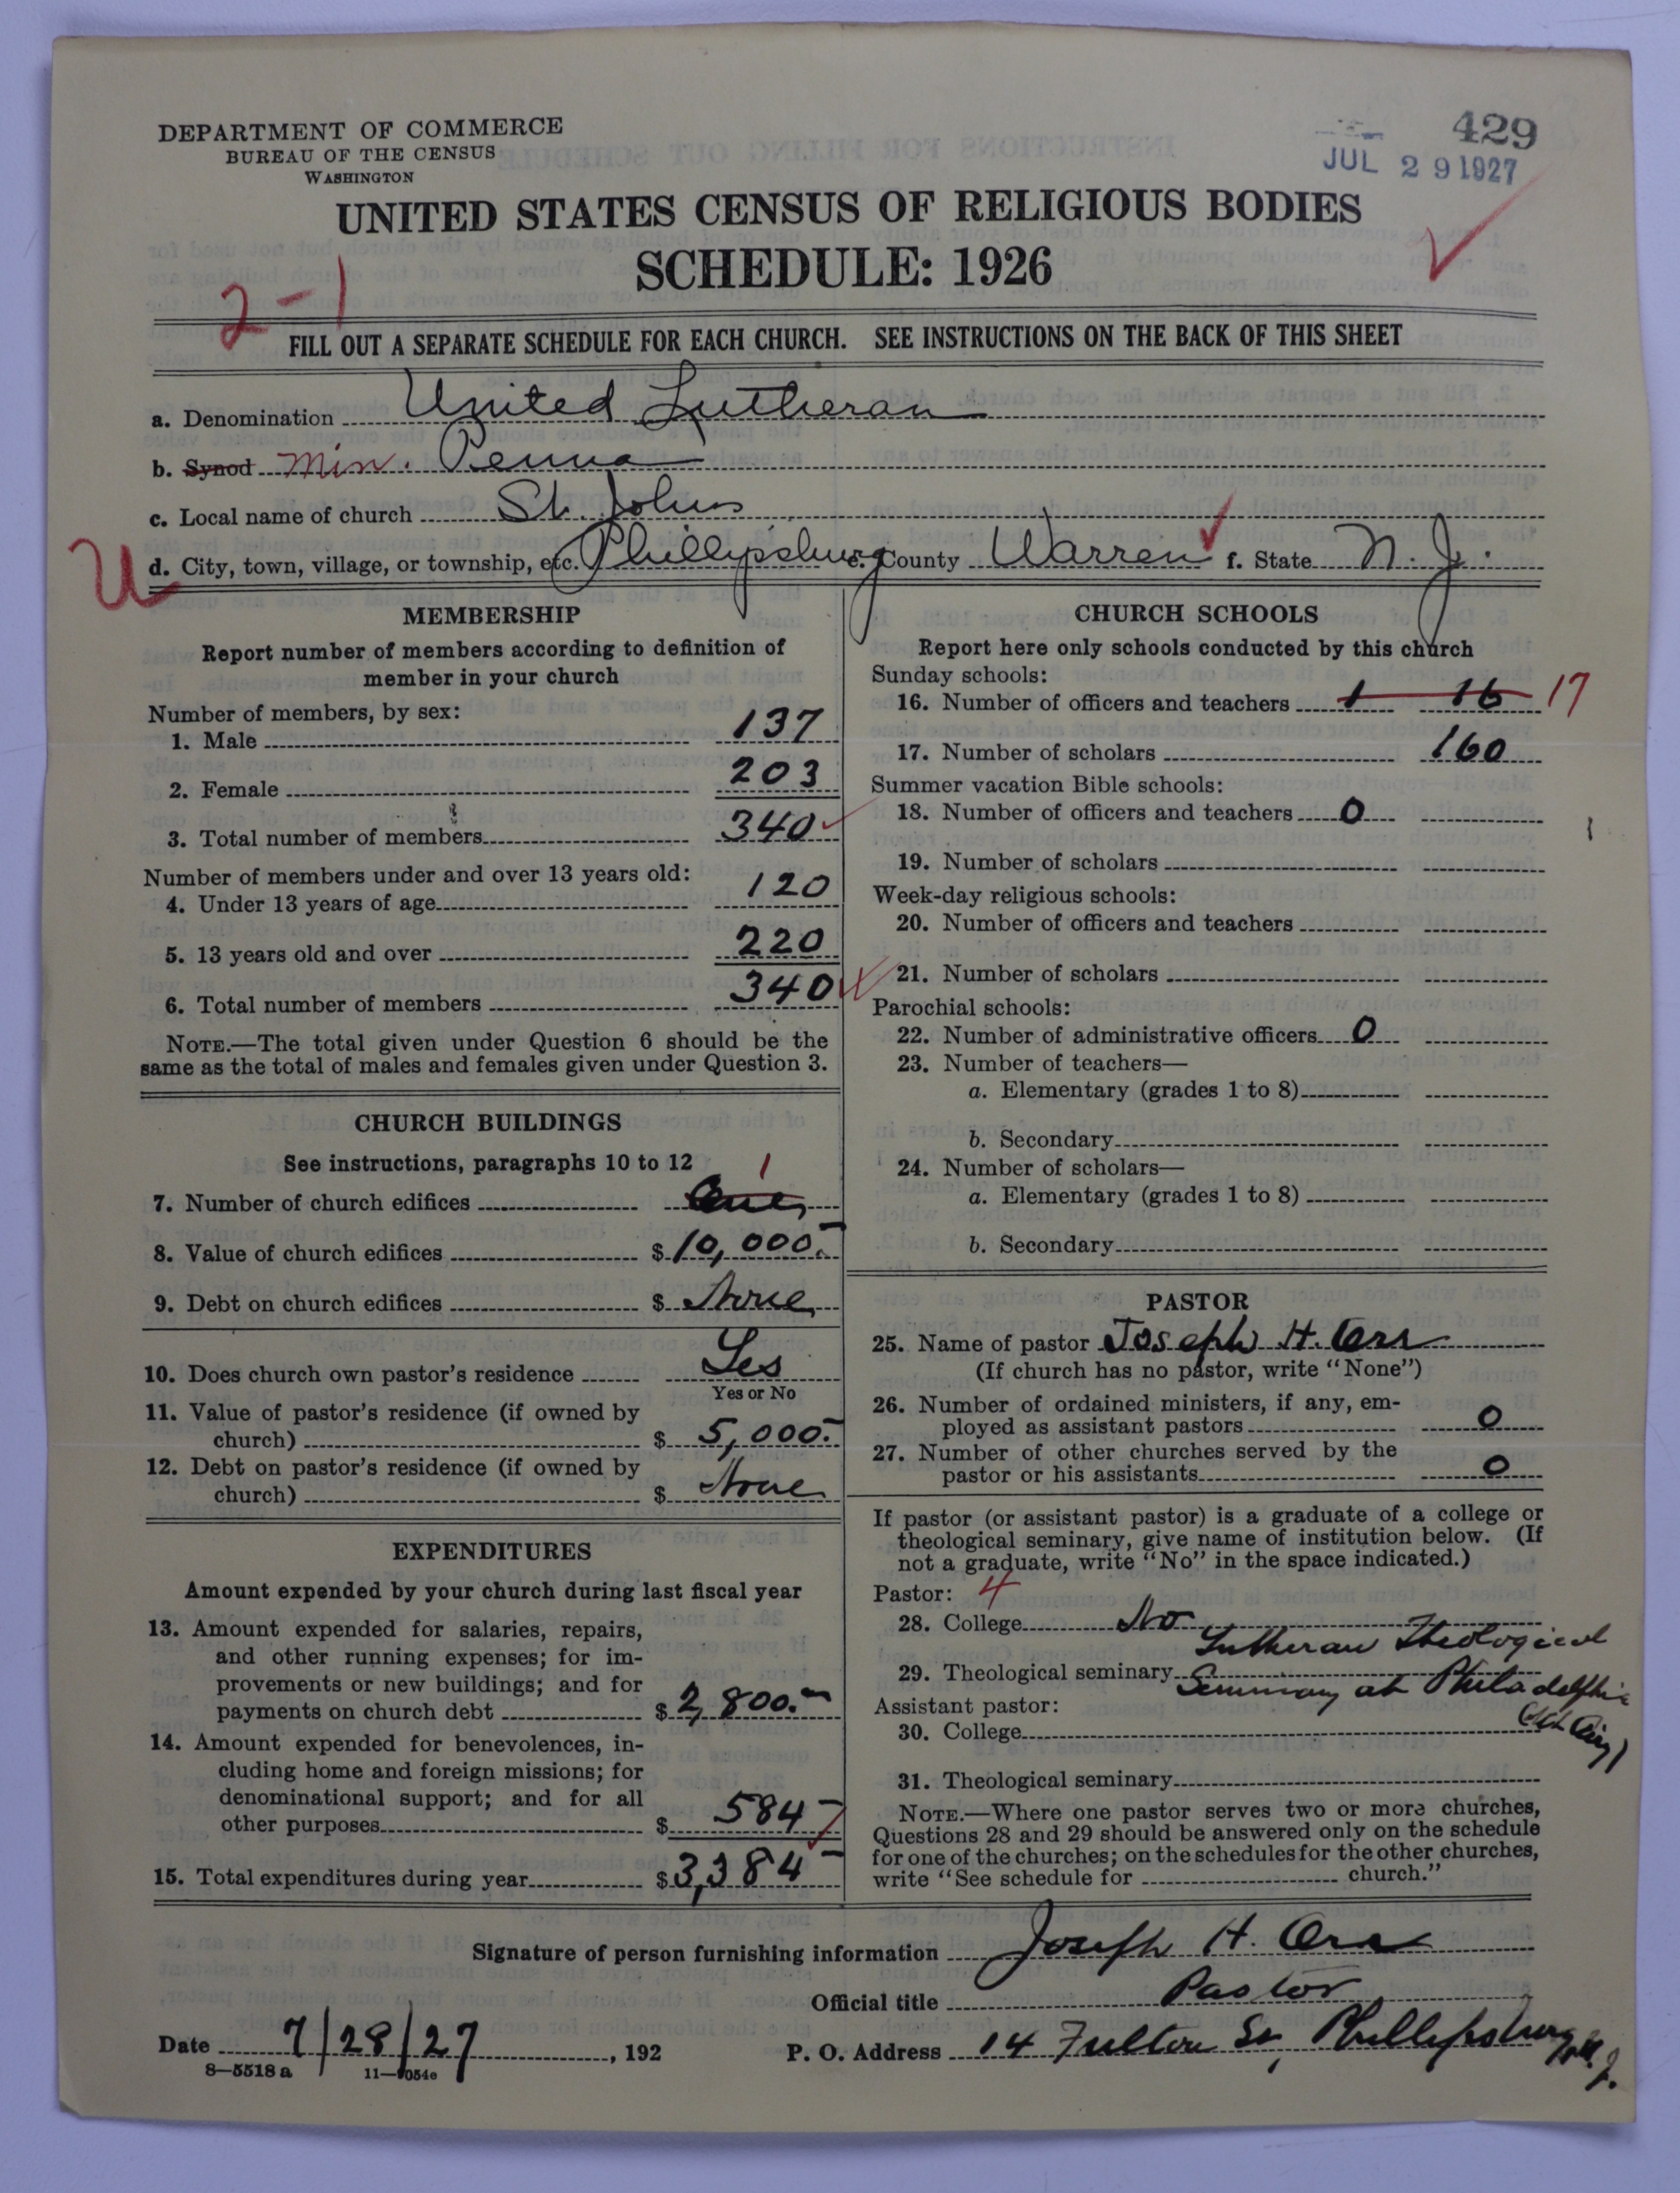 429
JUL 29 1927
DEPARTMENT OF COMMERCE
BUREAU OF THE CENSUS
WASHINGTON
UNITED STATES CENSUS OF RELIGIOUS BODIES
SCHEDULE: 1926
2-1
FILL OUT A SEPARATE SCHEDULE FOR EACH CHURCH. SEE INSTRUCTIONS ON THE BACK OF THIS SHEET
a. Denomination United Lutheran
b. Synod Min. Penna
c. Local name of church St. Johns
U
d. City, town, village, or township, etc. Phillipsburg e. County Warren f. State N. J.
MEMBERSHIP
Report number of members according to definition of
member in your church
Number of members, by sex:
1. Male 137
2. Female 203
3. Total number of members 340
Number of members under and over 13 years old:
4. Under 13 years of age 120
5. 13 years old and over 220
6. Total number of members 340
NOTE.—The total given under Question 6 should be the
same as the total of males and females given under Question 3.
CHURCH BUILDINGS
See instructions, paragraphs 10 to 12
7. Number of church edifices One 1
8. Value of church edifices $ 10,000.-
9. Debt on church edifices $ None
10. Does church own pastor's residence Yes
Yes or No
11. Value of pastor's residence (if owned by
church) $ 5,000.-
12. Debt on pastor's residence (if owned by
church) $ None
EXPENDITURES
Amount expended by your church during last fiscal year
13. Amount expended for salaries, repairs,
and other running expenses; for im-
provements or new buildings; and for
payments on church debt $ 2,800.-
14. Amount expended for benevolences, in-
cluding home and foreign missions; for
denominational support; and for all
other purposes $ 584-
15. Total expenditures during year $ 3,384-
CHURCH SCHOOLS
Report here only schools conducted by this church
Sunday schools:
16. Number of officers and teachers 1 16 17
17. Number of scholars 160
Summer vacation Bible schools:
18. Number of officers and teachers 0
19. Number of scholars
Week-day religious schools:
20. Number of officers and teachers
21. Number of scholars
Parochial schools:
22. Number of administrative officers 0
23. Number of teachers—
a. Elementary (grades 1 to 8)
b. Secondary
24. Number of scholars—
a. Elementary (grades 1 to 8)
b. Secondary
PASTOR
25. Name of pastor Joseph H. Orr
(If church has no pastor, write "None")
26. Number of ordained ministers, if any, em-
ployed as assistant pastors 0
27. Number of other churches served by the
pastor or his assistants 0
If pastor (or assistant pastor) is a graduate of a college or
theological seminary, give name of institution below. (If
not a graduate, write "No" in the space indicated.)
Pastor: 4
28. College No
29. Theological seminary Lutheran Theological
Seminary at Philadelphia
(Mt. Airy)
Assistant pastor:
30. College
31. Theological seminary
NOTE.—Where one pastor serves two or more churches,
Questions 28 and 29 should be answered only on the schedule
for one of the churches; on the schedules for the other churches,
write "See schedule for church."
Signature of person furnishing information Joseph H. Orr
Official title Pastor
Date 7/28/27, 192
P. O. Address 14 Fulton St, Phillipsburg, N. J.
8—5518 a 11—1054e